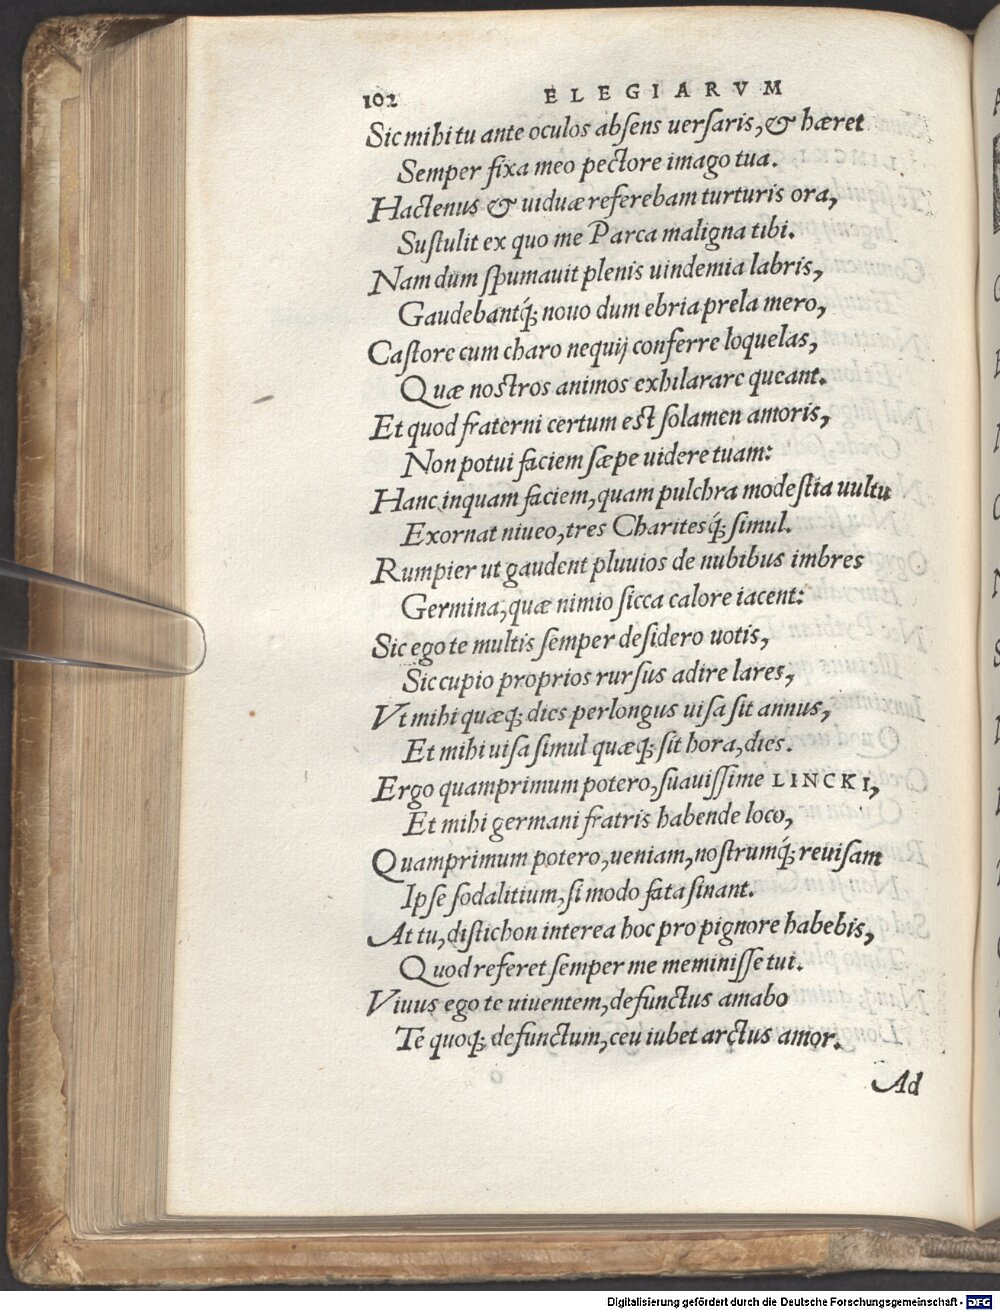 102 ELEGIARVM
Sic mihi tu ante oculos absens uersaris, & hæret
Semper fixa meo pectore imago tua.
Hactenus & uiduæ referebam turturis ora,
Sustulit ex quo me Parca maligna tibi.
Nam dum spumauit plenis uindemia labris,
Gaudebantq́; nouo dum ebria prela mero,
Castore cum charo nequij conferre loquelas,
Quæ nostros animos exhilarare queant.
Et quod fraterni certum est solamen amoris,
Non potui faciem sæpe uidere tuam:
Hanc inquam faciem, quam pulchra modestia uultu
Exornat niueo, tres Charitesq́; simul.
Rumpier ut gaudent pluuios de nubibus imbres
Germina, quæ nimio sicca calore iacent:
Sic ego te multis semper desidero uotis,
Sic cupio proprios rursus adire lares,
Vt mihi quæq; dies perlongus uisa sit annus,
Et mihi uisa simul quæq; sit hora, dies.
Ergo quamprimum potero, suauissime LINCKI,
Et mihi germani fratris habende loco,
Quamprimum potero, ueniam, nostrumq́; reuisam
Ipse sodalitium, si modo fata sinant.
At tu, distichon interea hoc pro pignore habebis,
Quod referet semper me meminisse tui.
Viuus ego te uiuentem, defunctus amabo
Te quoq; defunctum, ceu iubet arctus amor.
Ad
Digitalisierung gefördert durch die Deutsche Forschungsgemeinschaft - DFG